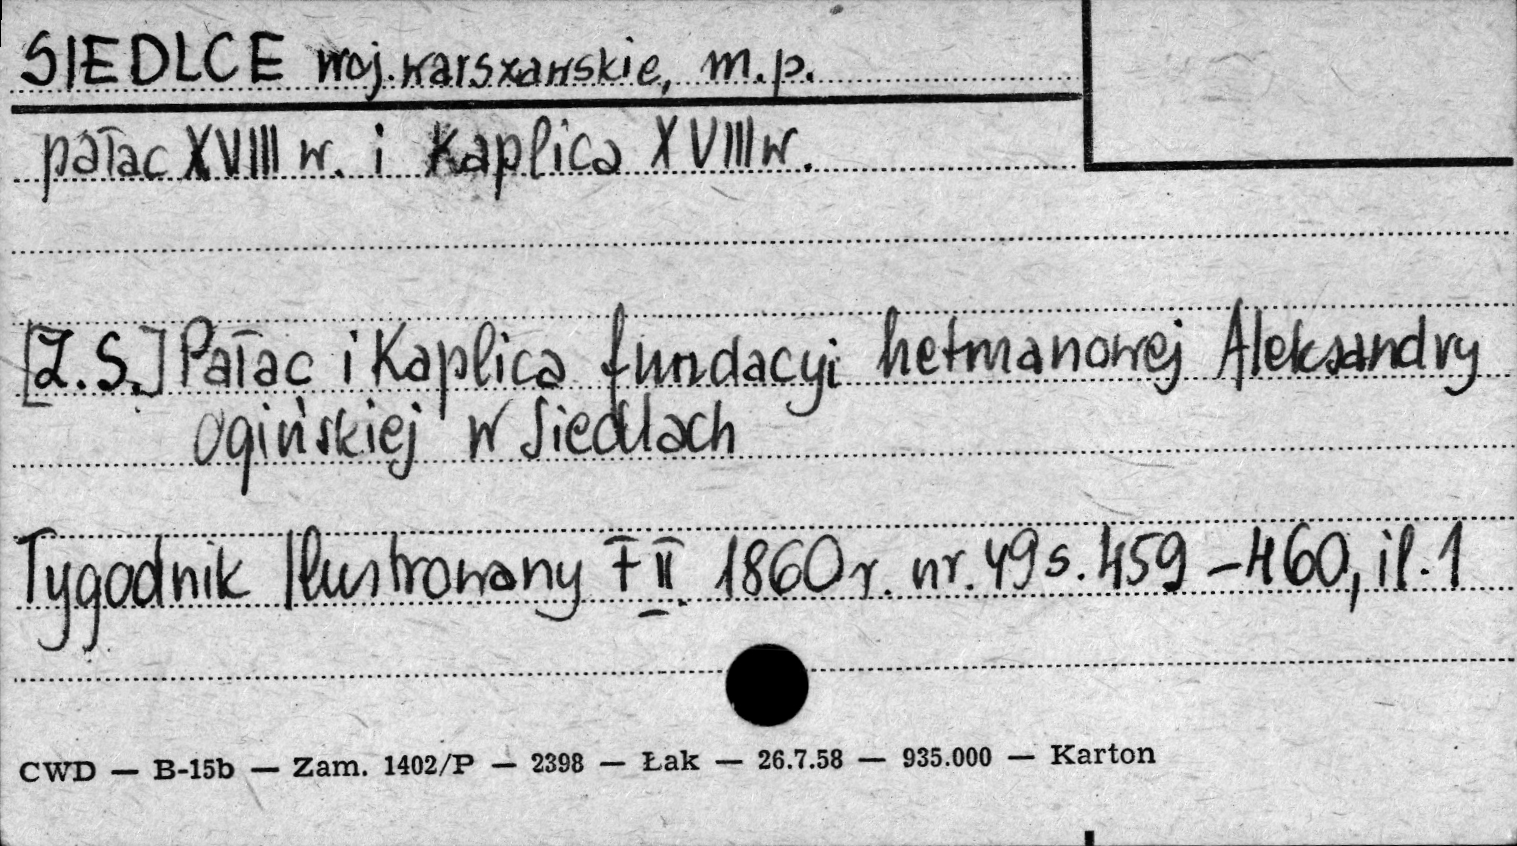 SIEDLCE woj. warszawskie, m.p.
pałac XVIII w. i Kaplica XVIII w.
[Z.S.] Pałac i Kaplica fundacyi hetmanowej Aleksandry
Ogińskiej w Siedlcach
Tygodnik Ilustrowany t II. 1860 r. nr. 49 s. 459 – 460, il. 1
CWD — B-15b — Zam. 1402/P — 2398 — Łak — 26.7.58 — 935.000 — Karton